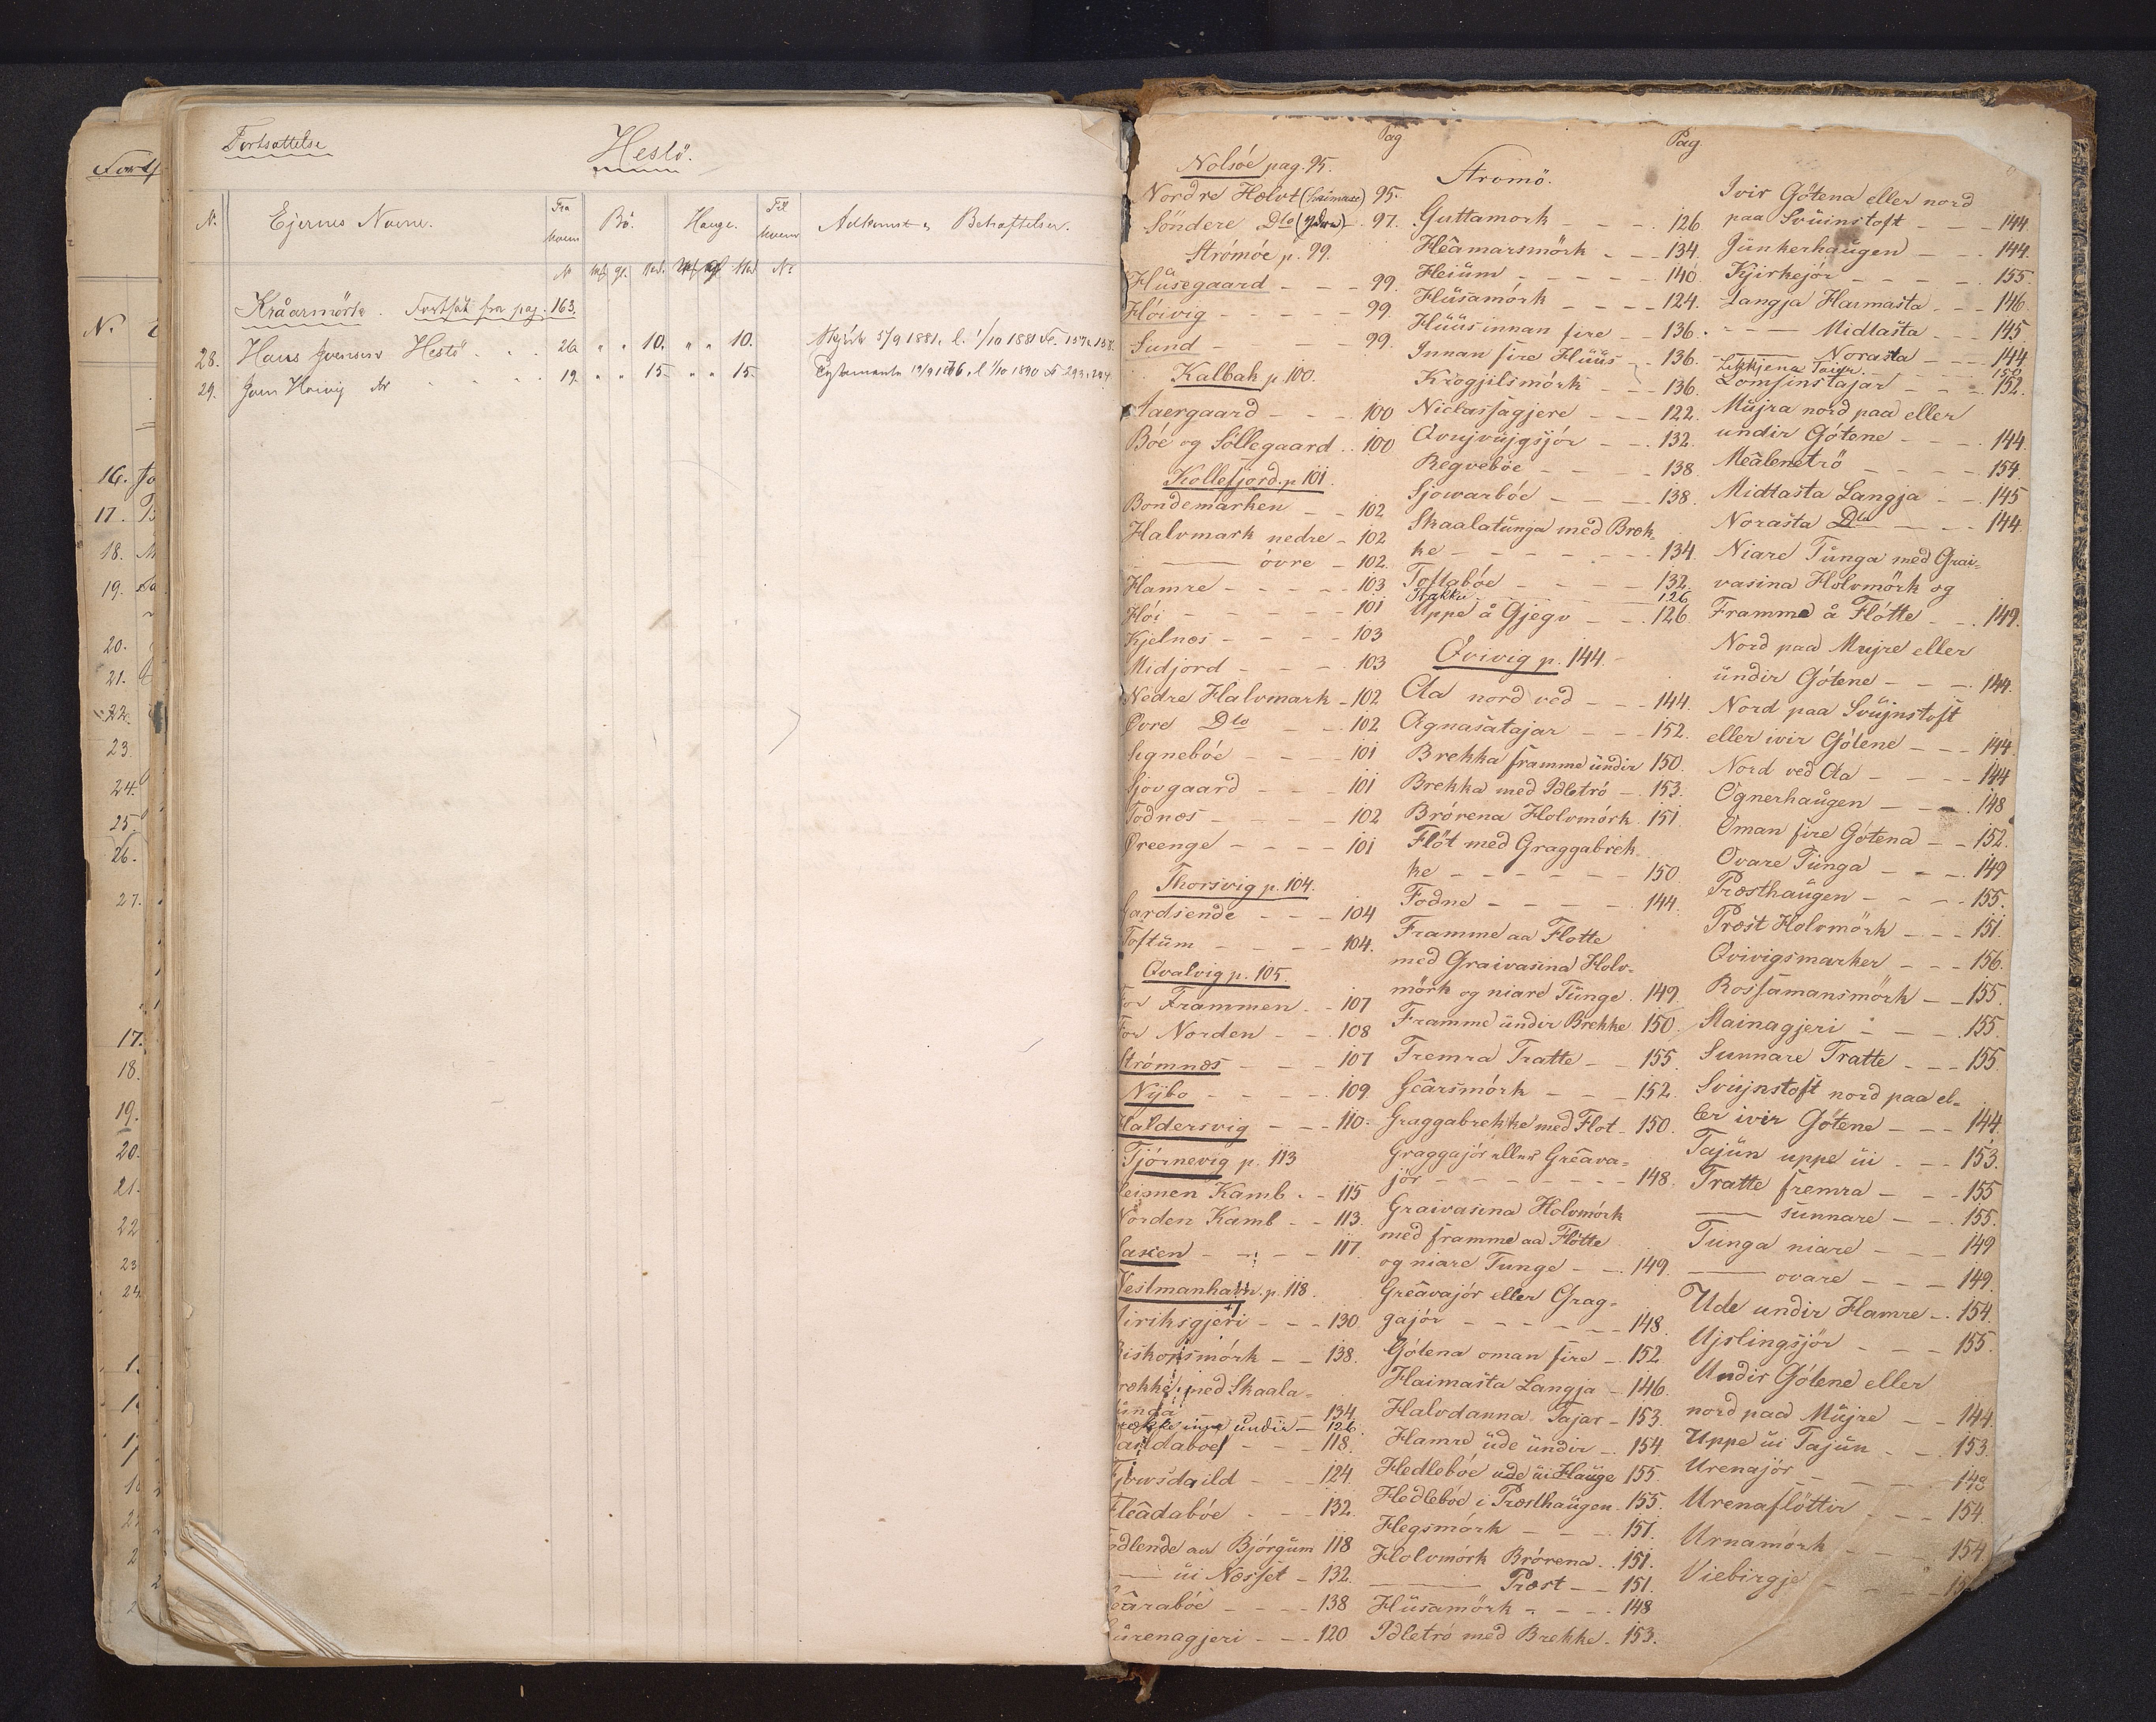 Fortsættelse
Hestö.
N. Ejernes Navne. Fra Numr Bö. Hauge. Til Numr Adkomst & Behæftelser.
N Mk gl. Sk. Mk gl Sk N
Kråarmörk. Fortsat fra pag. 163.
28. Hans Joensen Hestö 26 " " 10. " " 10. Skjöte 5/9 1881, l. 1/10 1881
29. Joen Höivig 19. " " 15. " " 15. Testamente
16.
17.
18.
19.
20.
21.
22.
23
24.
25.
26.
27.
17.
18.
19.
20.
21.
22
23
24
Pag
Nolsöe pag. 95.
Nordre Hælvt (heimase) 95.
Söndere Dto (ydere) 97.
Strömöe p. 99.
Hüsegaard - - - 99.
Höivig - - - - 99.
Sund - - - 99.
Kalbak p 100.
Aaergaard - - - 100
Böe og Söllegaard . . 100
Kollefjord. p 101.
Bondemarken - - 102
Halvmark nedre - 102
—— övre - 102.
Hamre - - - - 103
Höi - - - - 101
Kjelnæs - - - - 103
Midjord - - - 103
Nedre Halvmark - 102
Øvre Dto - - 102
Signeböe - - - 101
Sjovgaard - - - 101
Todnæs - - - - 102
Öreenge - - - - 101
Thorsvig p. 104.
Gardsende - - - 104
Toftüm - - - - 104.
Qvalvig p. 105.
For Frammen - - 107
For Norden - - 108
Strömnæs - - - 107
Nÿbo - - - - 109.
Haldersvig - - - 110.
Tjörnevig p. 113
Heimen Kamb. - - 115
Norden Kamb - - 113.
Saxen - - - - 117
Vestmanhavn. p. 118.
Eiriksgjeri - - - 130
Biskopsmörk - - 138.
Brekke med Skaala-
tünga - - - 134
Brekke inge undir - 126
- - - 118.
Fjowsdaild - - - 124
Fleâdaböe - - - 132.
Fodlende aa Bjórgüm 118
—— üi Næsset - 132.
Geâraböe - - - - 138
Gürenagjeri - - - 120
Pag
Strømö.
Guttamork - - - . 126
Heâmarsmörk - - 134.
Heiüm - - - - - 140.
Hüsamörk - - - 124.
Hüüs innan fire - 136.
Innan fire Hüüs - 136.
Krogjilsmörk - - 136.
Niclassagjere - - - 122.
Qvujvüjgsjör - - . 132.
Regveböe - - - - 138
Sjowarböe - - - 138.
Skaalatünga med Bræk-
ke - - - - - - - 134.
Toftaböe - - - - 132
Trakkie - - - - 126
Uppe å Gjegv - - . 126.
Qvivig p. 144.
Aa nord ved - - - 144.
Agnasatajar - - - 152.
Brekka framme ündir 150.
Brekka med Idletrö - 153.
Brörena Holvmörk. 151.
Flöt med Graggabrek
ke - - - - - - - 150
Fodne - - - - - 144.
Framme aa Flotte
med Graivasina Holv-
mörk og niare Tünge. 149.
Framme ündir Brekke 150.
Fremra Tratte - - 155.
Geârsmörk - - - 152.
Graggabrekke med Flot - 150.
Graggajör eller Greâva-
jör - - - - - - - 148.
Graivasina Holvmörk
med framme aa Flötte
og niare Tunge - - 149.
Greâvajör eller Grag-
gajör - - - - - - 148.
Götena oman fire - 152
Haimasta Langja - 146.
Halvdanna Tajar - 153.
Hamre üde ündir - 154
Hedleböe ude üi Hauge 155.
Hedleböe i Præsthaügen. 155.
Hegsmörk - - - 151.
Holvmörk Brörena . 151.
—— Præst - - 151.
Hüsamörk - - - - 148
Idletrö med Brekke. 153.
Ivir Götena eller nord
paa Svüinstoft - - - 144.
Junkerhaügen - - - 144.
Kjirkejör - - - - - 155.
Langja Haimasta - - - 146.
- —— Midtasta - - - 145.
—— Norasta - - - 144
Lekkjena Taijar - - 150
Lomsinstajar - - - 152.
Müjra nord paa eller
undir Götene - - - . 144.
Meâlenetrö - - - - 154.
Midtasta Langja - - 145
Norasta Dto - - - 144.
Niare Tünga med Grai-
vasina Holvmörk og
Framme å Flötte - - . 149.
Nord paa Mujre eller
ündir Götene - - - . 144.
Nord paa Svüjnstoft
eller ivir Götene - - - 144.
Nord ved Aa - - - - 144
Ognerhaügen - - - . 148
Oman fire Götena - - 152.
Ovare Tünga - - - . 149
Præsthaügen - - - - 155.
Præst Holvmörk - - - 151.
Qvivigsmarker - - - 156.
Rossamansmörk - - 155.
Stainagjeri - - - - 155.
Sunnare Tratte - - - 155.
Svüjnstoft nord paa el-
ler ivir Götene - - - 144.
Tajün uppe üi - - - 153.
Tratte fremra - - - 155
—— sunnare - - . 155.
Tunga niare - - - 149
—— ovare - - - 149.
Ude undir Hamre - . 154.
Ujslingsjör - - - 155.
Undir Götene eller
nord paa Müjre - - 144.
Uppe üi Tajün - - 153.
Urenajör - - - - 148
Urenaflöttir - - - 154.
Urnamörk - - - 154
Viebirgje - - - -